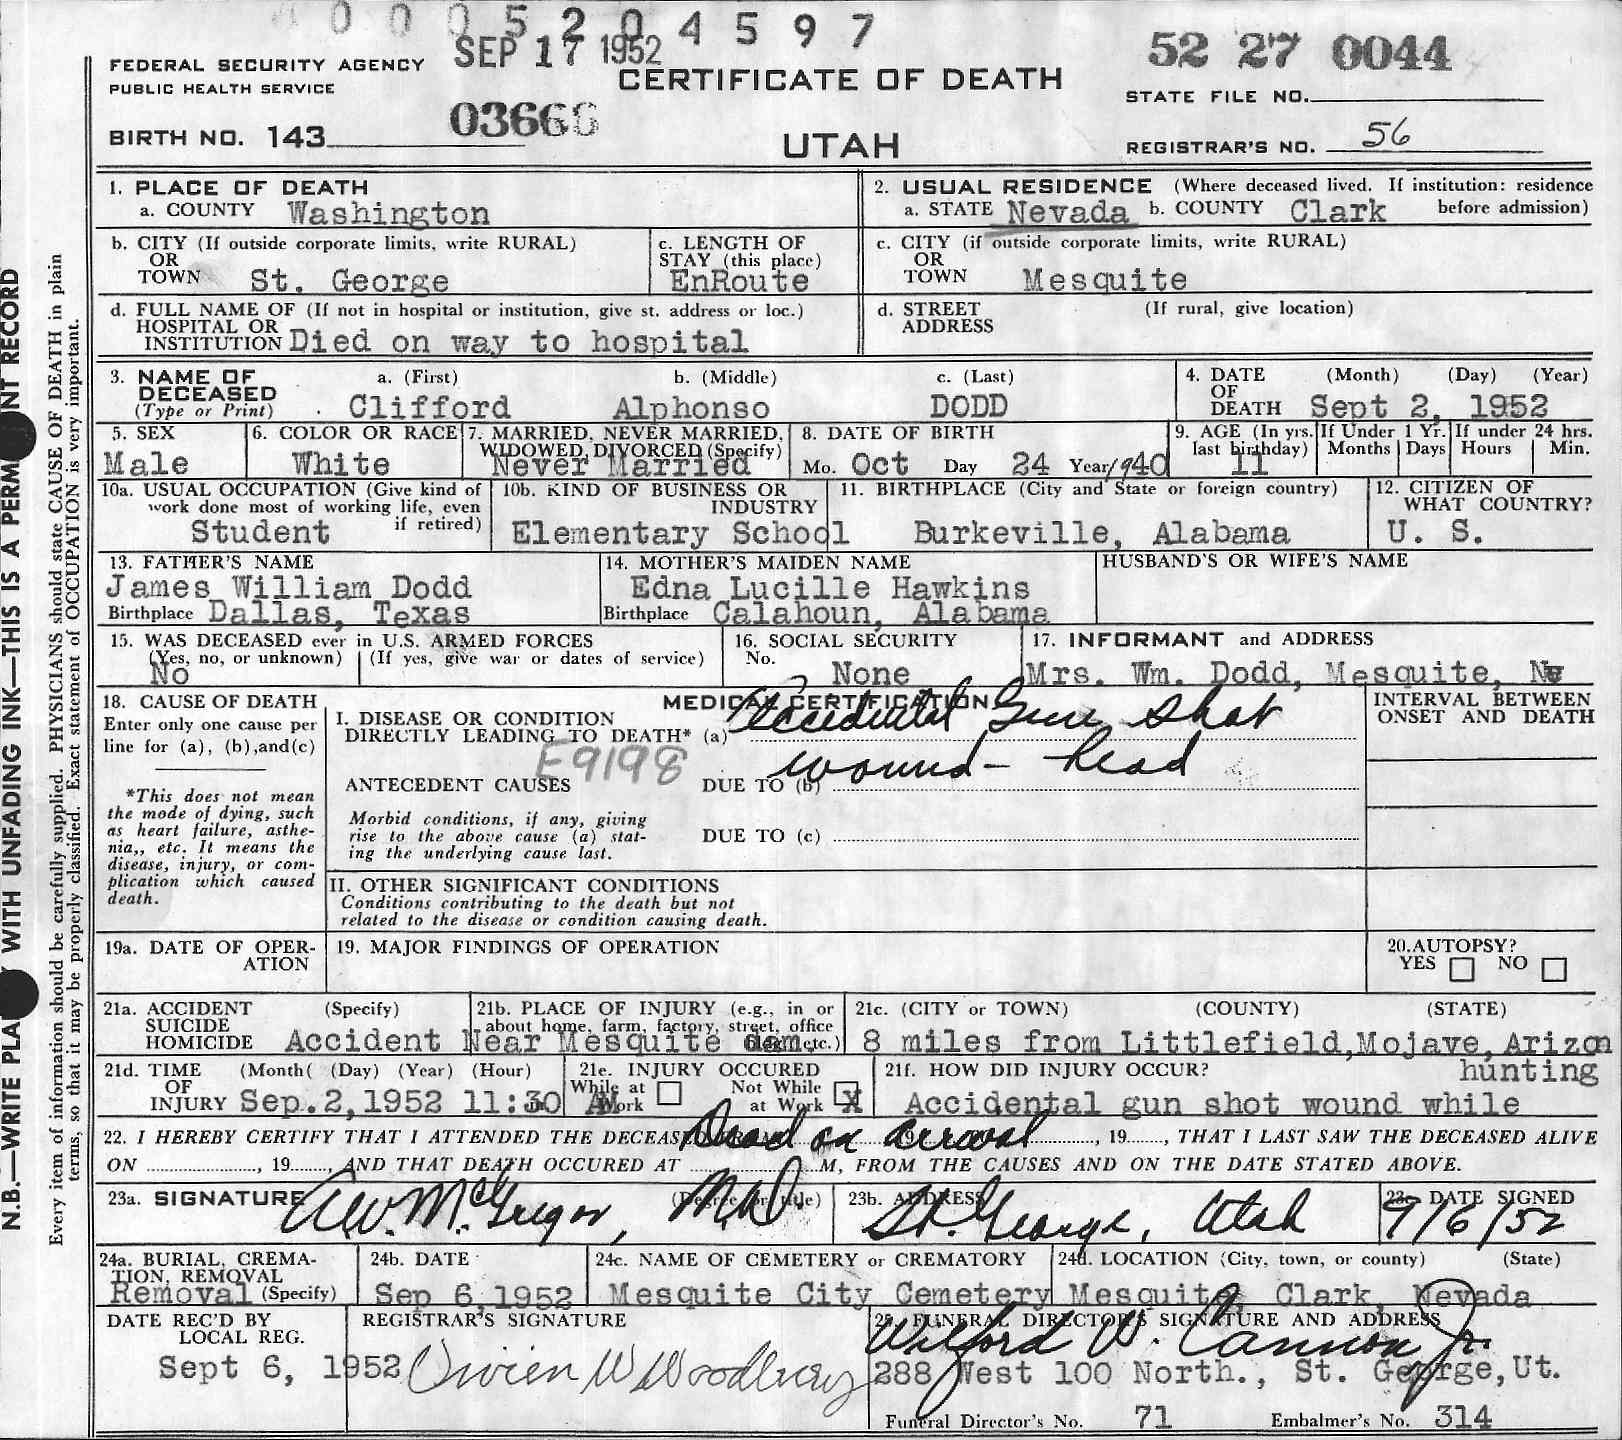 0 0 0 5 2 0 4 5 9 7
SEP 17 1952
52 27 0044
FEDERAL SECURITY AGENCY
PUBLIC HEALTH SERVICE
CERTIFICATE OF DEATH
STATE FILE NO.
BIRTH NO. 143
03666
UTAH
REGISTRAR'S NO. 56
N.B.—WRITE WITH UNFADING INK—THIS IS A RECORD
Every item of information should be carefully supplied. PHYSICIANS should state CAUSE OF DEATH in plain
terms, so that it may be properly classified. Exact statement of OCCUPATION is very important.
1. PLACE OF DEATH
a. COUNTY Washington
2. USUAL RESIDENCE (Where deceased lived. If institution: residence
a. STATE Nevada b. COUNTY Clark before admission)
b. CITY (If outside corporate limits, write RURAL)
OR
TOWN St. George
c. LENGTH OF
STAY (this place)
EnRoute
c. CITY (if outside corporate limits, write RURAL)
OR
TOWN Mesquite
d. FULL NAME OF (If not in hospital or institution, give st. address or loc.)
HOSPITAL OR
INSTITUTION Died on way to hospital
d. STREET (If rural, give location)
ADDRESS
3. NAME OF a. (First) b. (Middle) c. (Last)
DECEASED
(Type or Print) Clifford Alphonso DODD
4. DATE (Month) (Day) (Year)
OF
DEATH Sept 2, 1952
5. SEX
Male
6. COLOR OR RACE
White
7. MARRIED, NEVER MARRIED,
WIDOWED, DIVORCED (Specify)
Never Married
8. DATE OF BIRTH
Mo. Oct Day 24 Year 1940
9. AGE (In yrs.
last birthday)
11
If Under 1 Yr.
Months Days
If under 24 hrs.
Hours Min.
10a. USUAL OCCUPATION (Give kind of
work done most of working life, even
if retired)
Student
10b. KIND OF BUSINESS OR
INDUSTRY
Elementary School
11. BIRTHPLACE (City and State or foreign country)
Burkeville, Alabama
12. CITIZEN OF
WHAT COUNTRY?
U. S.
13. FATHER'S NAME
James William Dodd
Birthplace Dallas, Texas
14. MOTHER'S MAIDEN NAME
Edna Lucille Hawkins
Birthplace Calahoun, Alabama
HUSBAND'S OR WIFE'S NAME
15. WAS DECEASED ever in U.S. ARMED FORCES
(Yes, no, or unknown) (If yes, give war or dates of service)
No
16. SOCIAL SECURITY
No. None
17. INFORMANT and ADDRESS
Mrs. Wm. Dodd, Mesquite, Ne
18. CAUSE OF DEATH
Enter only one cause per
line for (a), (b),and(c)
*This does not mean
the mode of dying, such
as heart failure, asthe-
nia,, etc. It means the
disease, injury, or com-
plication which caused
death.
MEDICAL CERTIFICATION
I. DISEASE OR CONDITION
DIRECTLY LEADING TO DEATH* (a) Accidental Gun shot
E9198
ANTECEDENT CAUSES DUE TO (b) wound - head
Morbid conditions, if any, giving
rise to the above cause (a) stat-
ing the underlying cause last.
DUE TO (c)
INTERVAL BETWEEN
ONSET AND DEATH
II. OTHER SIGNIFICANT CONDITIONS
Conditions contributing to the death but not
related to the disease or condition causing death.
19a. DATE OF OPER-
ATION
19. MAJOR FINDINGS OF OPERATION
20.AUTOPSY?
YES NO
21a. ACCIDENT (Specify)
SUICIDE
HOMICIDE Accident
21b. PLACE OF INJURY (e.g., in or
about home, farm, factory, street, office
etc.)
Near Mesquite dam.
21c. (CITY or TOWN) (COUNTY) (STATE)
8 miles from Littlefield,Mojave,Arizon
21d. TIME (Month( (Day) (Year) (Hour)
OF
INJURY Sep.2,1952 11:30 AM
21e. INJURY OCCURED
While at Work
Not While at Work X
21f. HOW DID INJURY OCCUR? hunting
Accidental gun shot wound while
22. I HEREBY CERTIFY THAT I ATTENDED THE DECEASED Dead on arrival, 19....., THAT I LAST SAW THE DECEASED ALIVE
ON ................, 19......., AND THAT DEATH OCCURED AT ..................M, FROM THE CAUSES AND ON THE DATE STATED ABOVE.
23a. SIGNATURE (Degree or title)
A.W. McGregor, M.D.
23b. ADDRESS
St. George, Utah
23c. DATE SIGNED
9/6/52
24a. BURIAL, CREMA-
TION, REMOVAL
Removal (Specify)
24b. DATE
Sep 6,1952
24c. NAME OF CEMETERY or CREMATORY
Mesquite City Cemetery
24d. LOCATION (City, town, or county) (State)
Mesquite, Clark, Nevada
DATE REC'D BY
LOCAL REG.
Sept 6, 1952
REGISTRAR'S SIGNATURE
Vivien W Woodbury
25. FUNERAL DIRECTOR'S SIGNATURE AND ADDRESS
Wilford W. Cannon Jr.
288 West 100 North., St. George,Ut.
Funeral Director's No. 71 Embalmer's No. 314